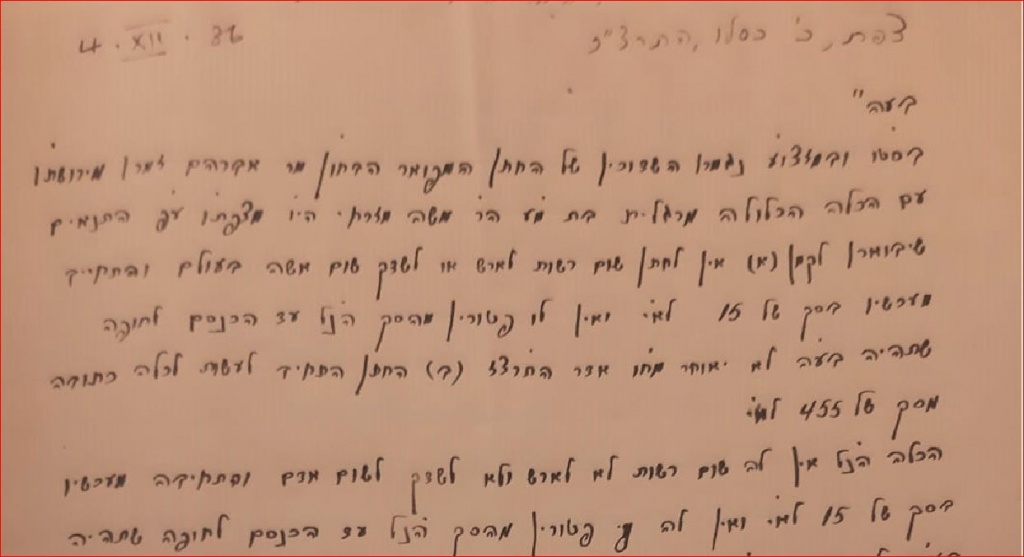 4. XII. 36
צפת, כ' כסלו, התרצ"ז
בעה"
בסטו ובמזצוע נגמרו השדוכין של החתן המפואר הבחור מר אברהם זמרן מירושת"ו
עם הכלה הכלולה מרגלית בת מע' הר' משה מזרחי הי"ו מצפתו עפ התנאים
שיבוארו לקמן (א) אין לחתן שום רשות לארש או לשדך שום אשה בעולם והתחייב
מעכשיו בסך של 15 לאי ואין לו פטורין מהסך הנ"ל עד הכנסם לחופה
שתהיה בעה לא יאוחר מחו' אדר התרצז (ב) החתן התחייב לעשות לכלה כתובה
מסך של 455 לאי.
הכלה הנ"ל אין לה שום רשות לא לארש ולא לשדך לשום אדם והתחייבה מעכשיו
בסך של 15 לאי ואין לה פטורין מהסך הנ"ל עד הכנסם לחופה שתהיה